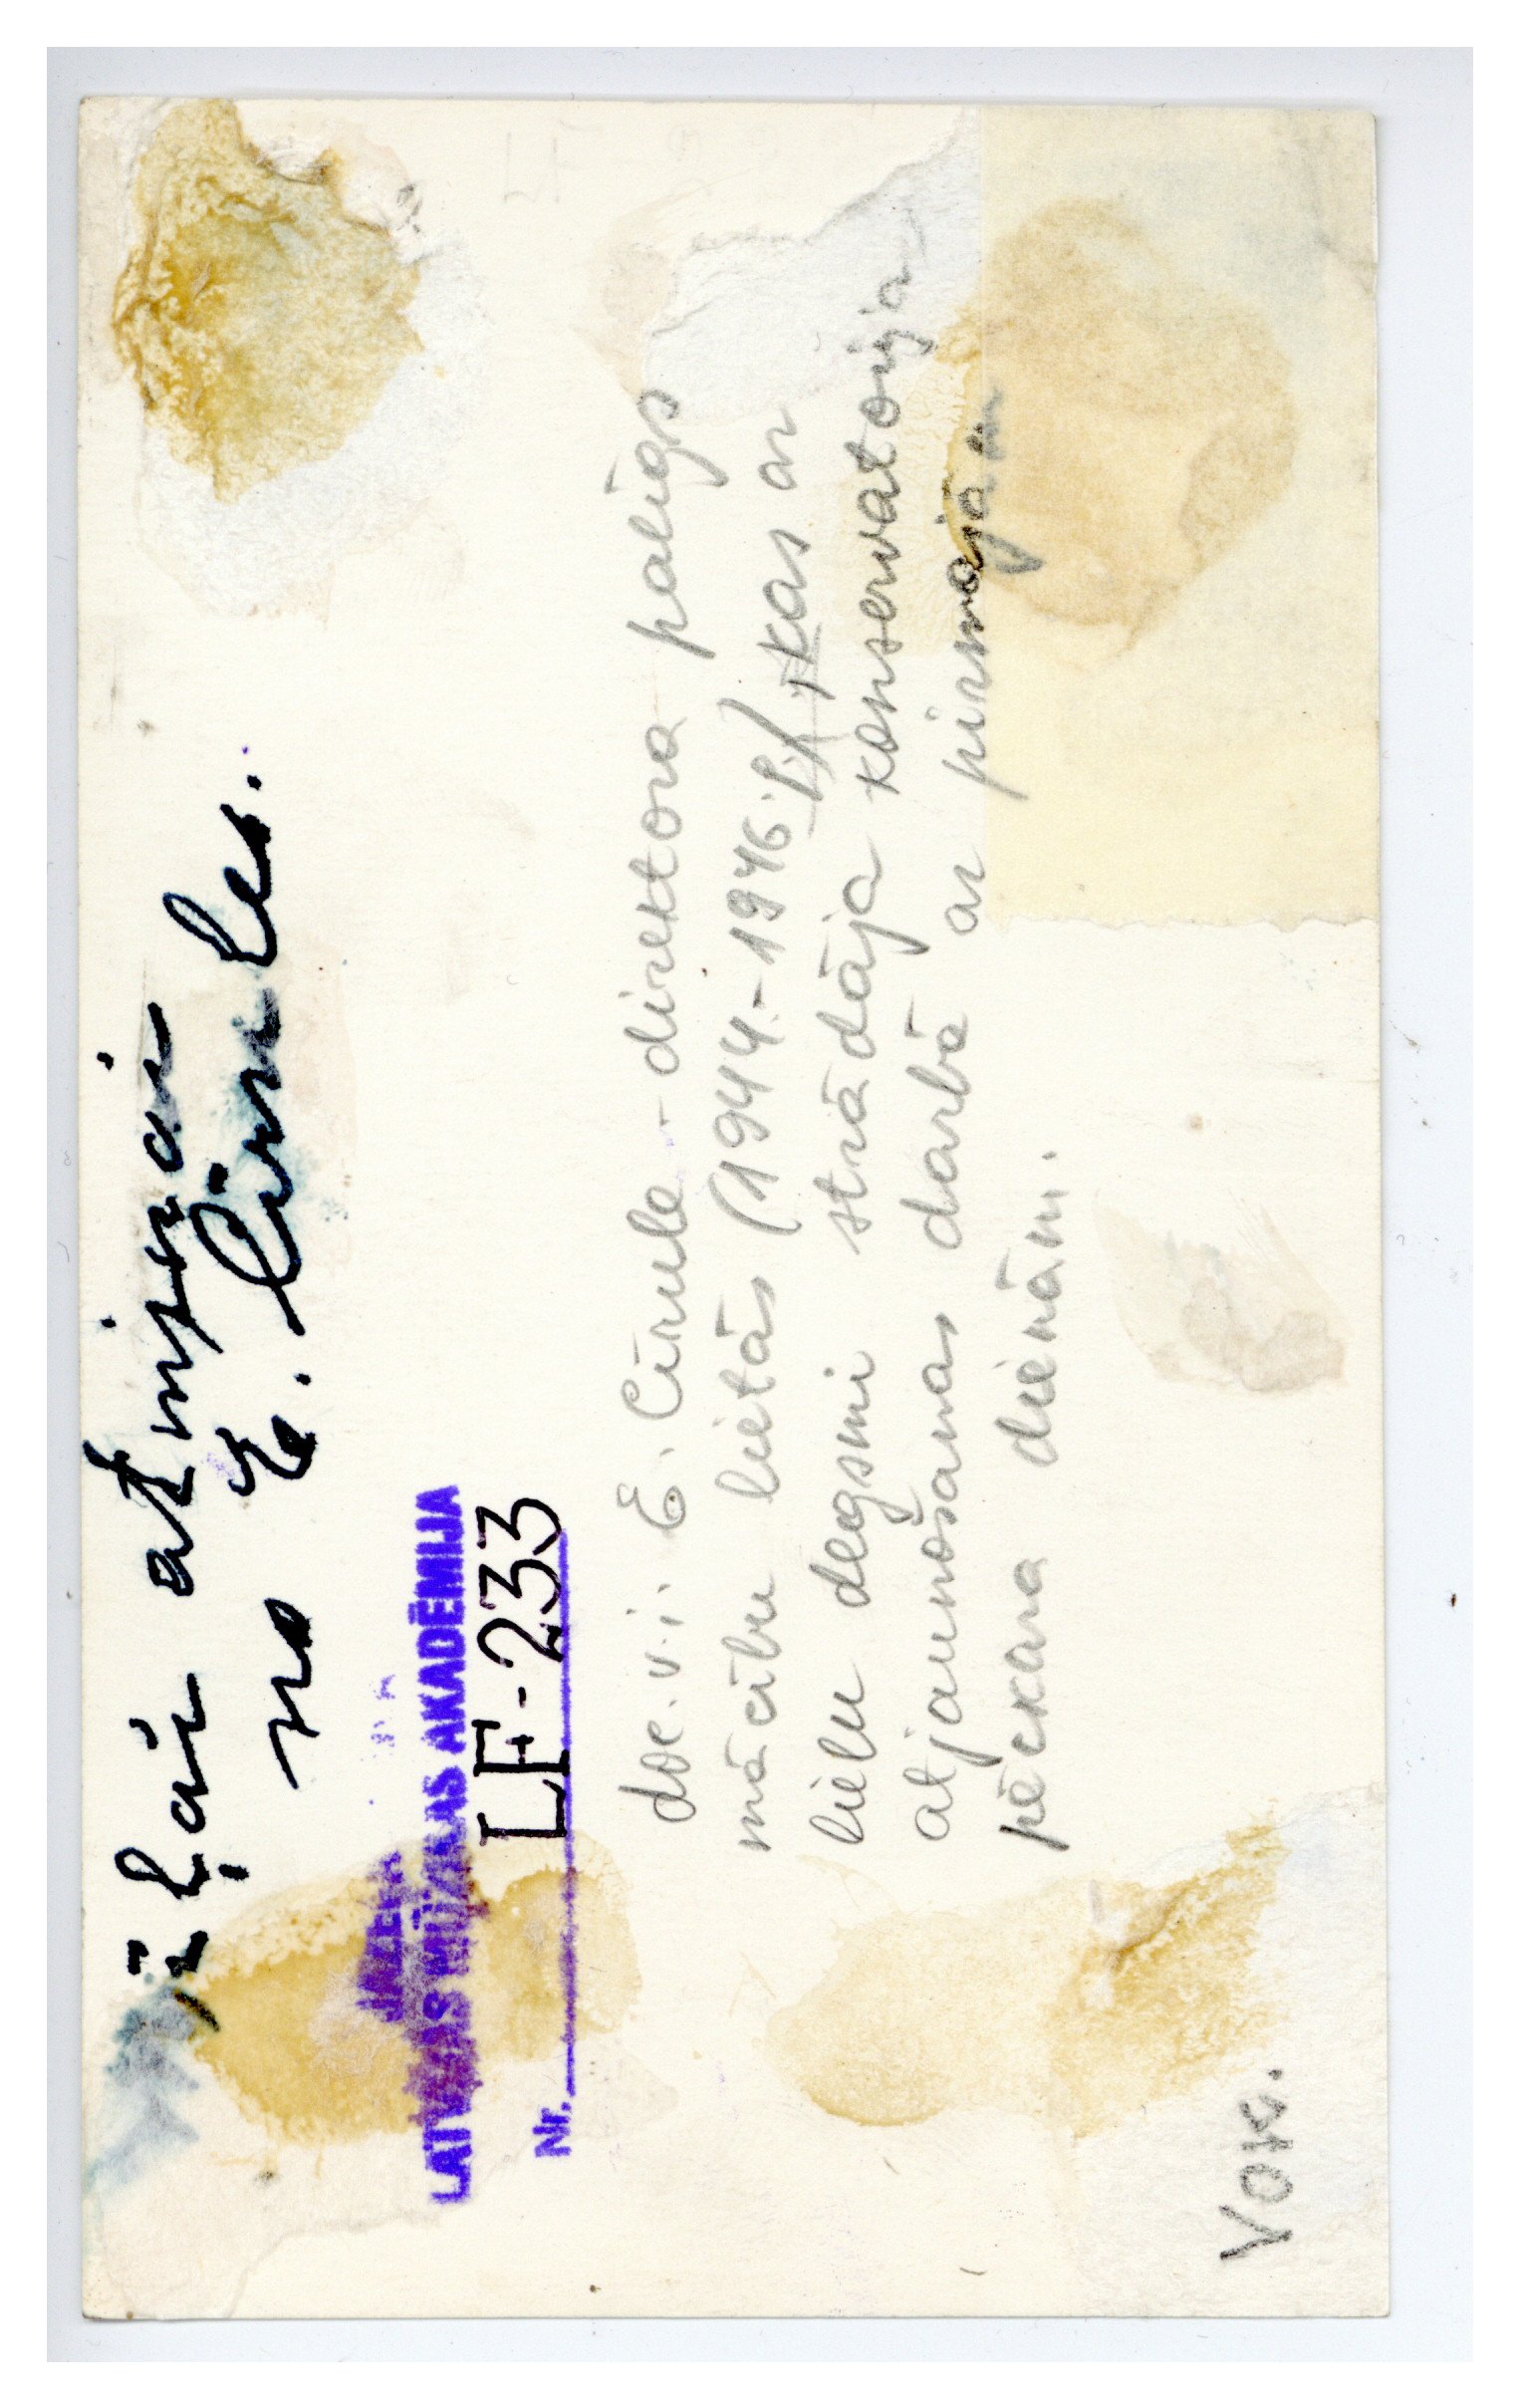 "Ļaiļ atmiņai
no E. Cīrules.
JĀZEPA
LATVIJAS MŪZIKAS AKADĒMIJA
Nr. LF-233
doc. v.i. E. Cīrule - direktora palīgs
mācību lietās (1944.-1946.g.), kas ar
lielu degsmi strādāja konservatorija
atjaunošanas darbā ar pirmajām
pēckara dienām.
Vok.